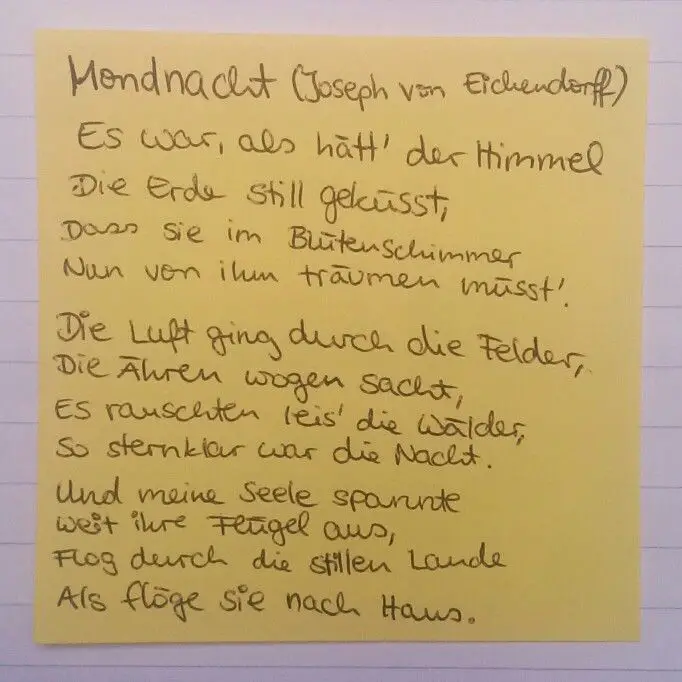 Mondnacht (Joseph von Eichendorff)
Es war, als hätt' der Himmel
Die Erde still geküsst,
Dass sie im Blütenschimmer
Nun von ihm träumen müsst'.
Die Luft ging durch die Felder,
Die Ähren wogen sacht,
Es rauschten leis' die Wälder,
So sternklar war die Nacht.
Und meine Seele spannte
Weit ihre Flügel aus,
Flog durch die stillen Lande
Als flöge sie nach Haus.